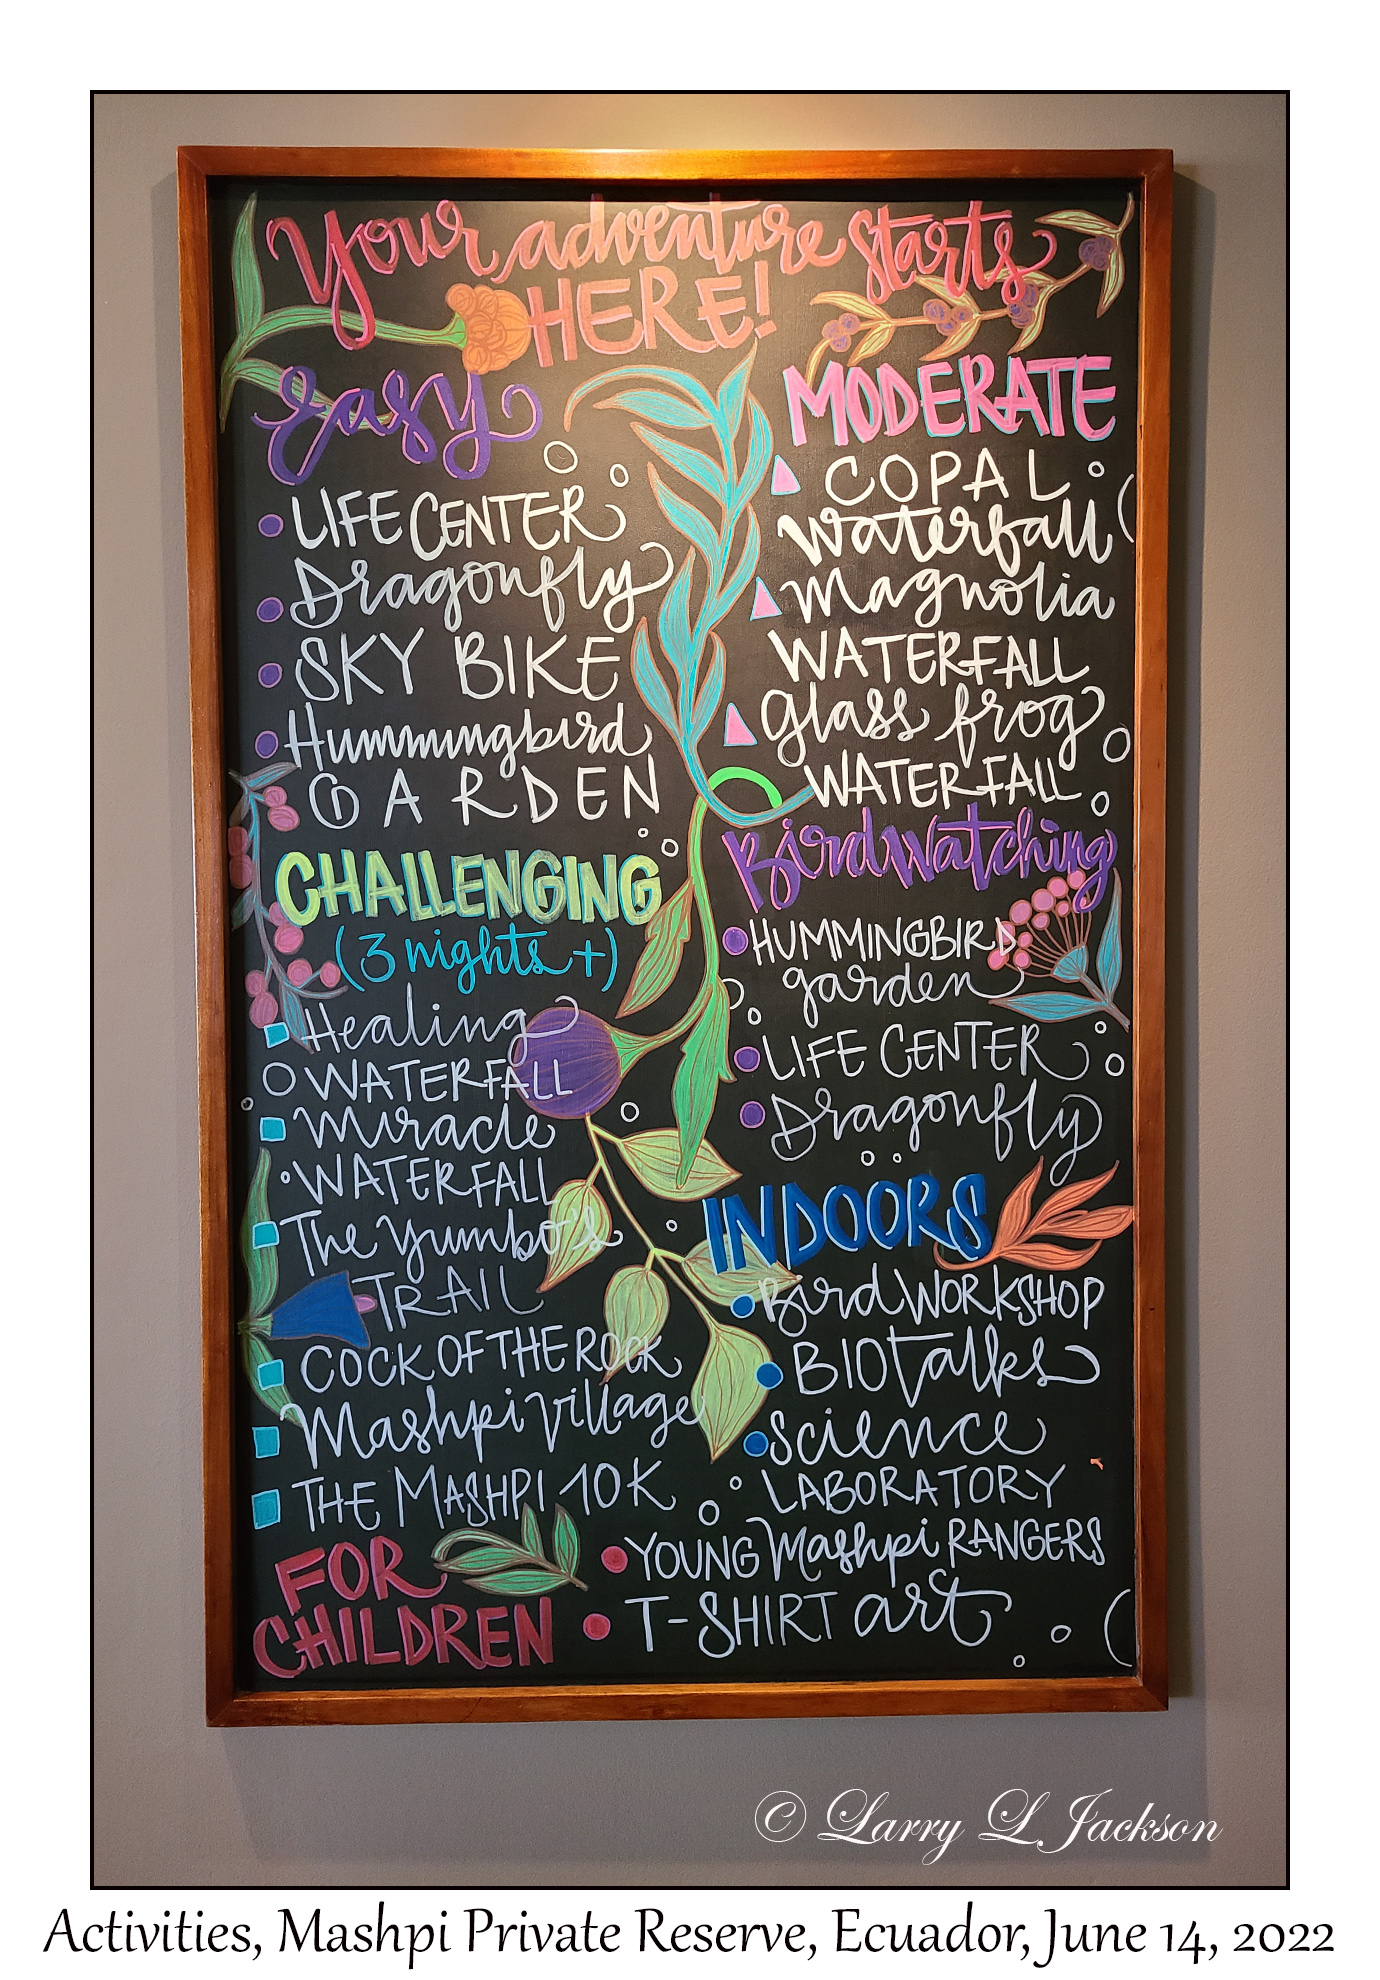 Your adventure starts
HERE!
easy
LIFE CENTER
Dragonfly
SKY BIKE
Hummingbird
GARDEN
MODERATE
COPAL
waterfall
Magnolia
WATERFALL
glass frog
WATERFALL
CHALLENGING
(3 nights +)
Healing
WATERFALL
Miracle
WATERFALL
The Yumbo's
TRAIL
COCK OF THE ROCK
Mashpi Village
THE MASHPI 10K
Birdwatching
HUMMINGBIRD
garden
LIFE CENTER
Dragonfly
INDOORS
Bird WORKSHOP
BIOtalks
Science
LABORATORY
FOR
CHILDREN
YOUNG Mashpi RANGERS
T-SHIRT art
© Larry L Jackson
Activities, Mashpi Private Reserve, Ecuador, June 14, 2022